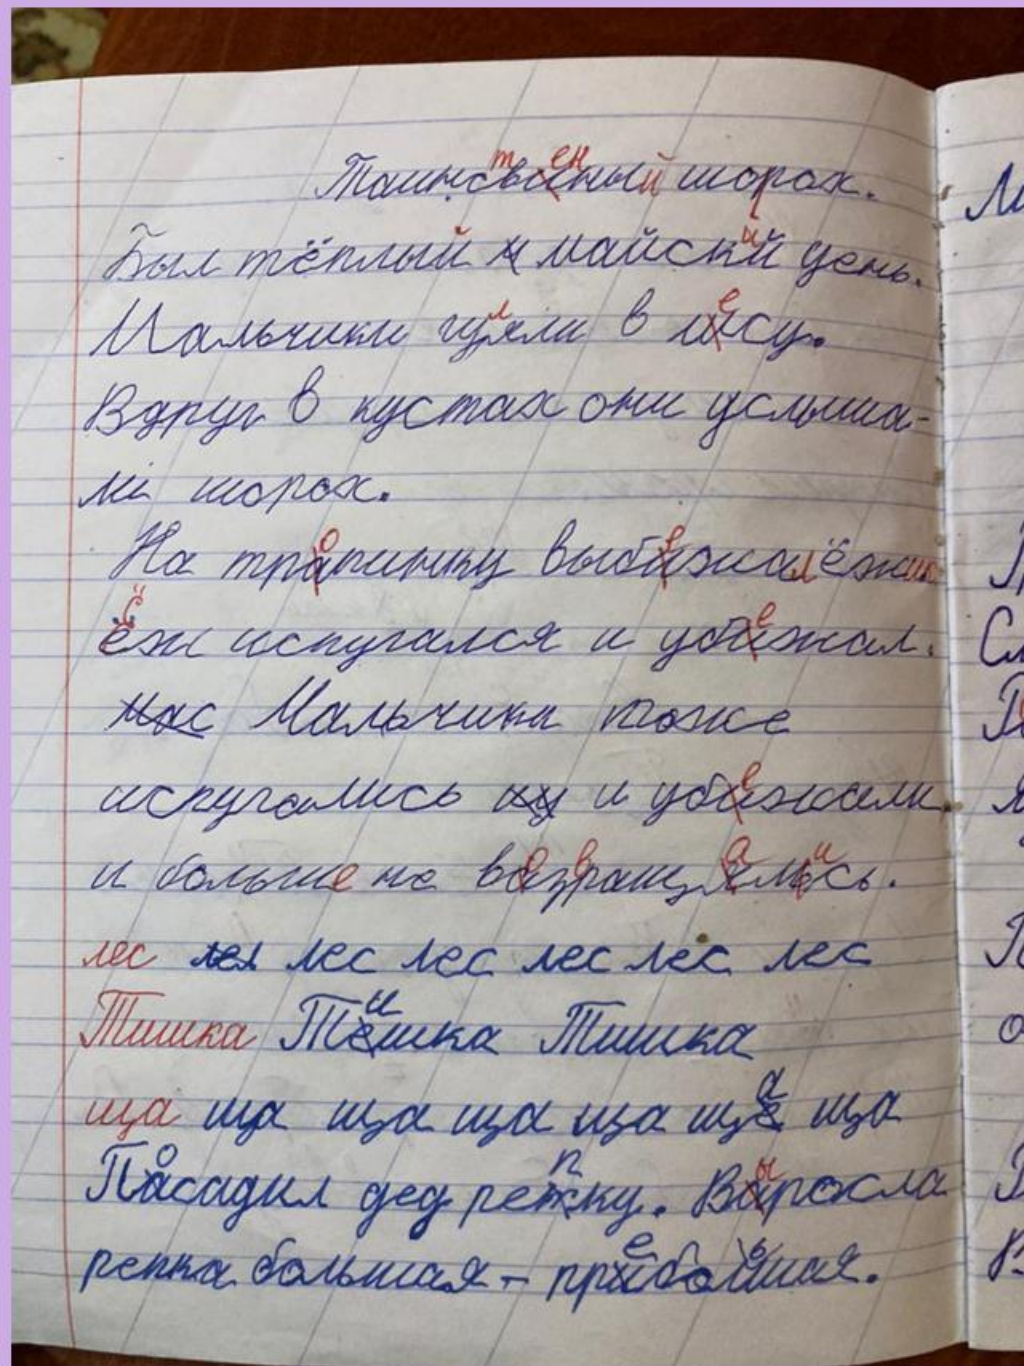 Таинственный шорох.
Был тёплый майский день.
Мальчики гуляли в лесу.
Вдруг в кустах они услыша-
ли шорох.
На тропинку выбежал ёжик
Ёж испугался и убежал.
Мальчики тоже
испугались и убежали
и больше не возвращались.
лес лес лес лес лес лес
Тишка Тишка Тишка
ща ща ща ща ща ща ща
Посадил дед репку. Выросла
репка большая - пребольшая.